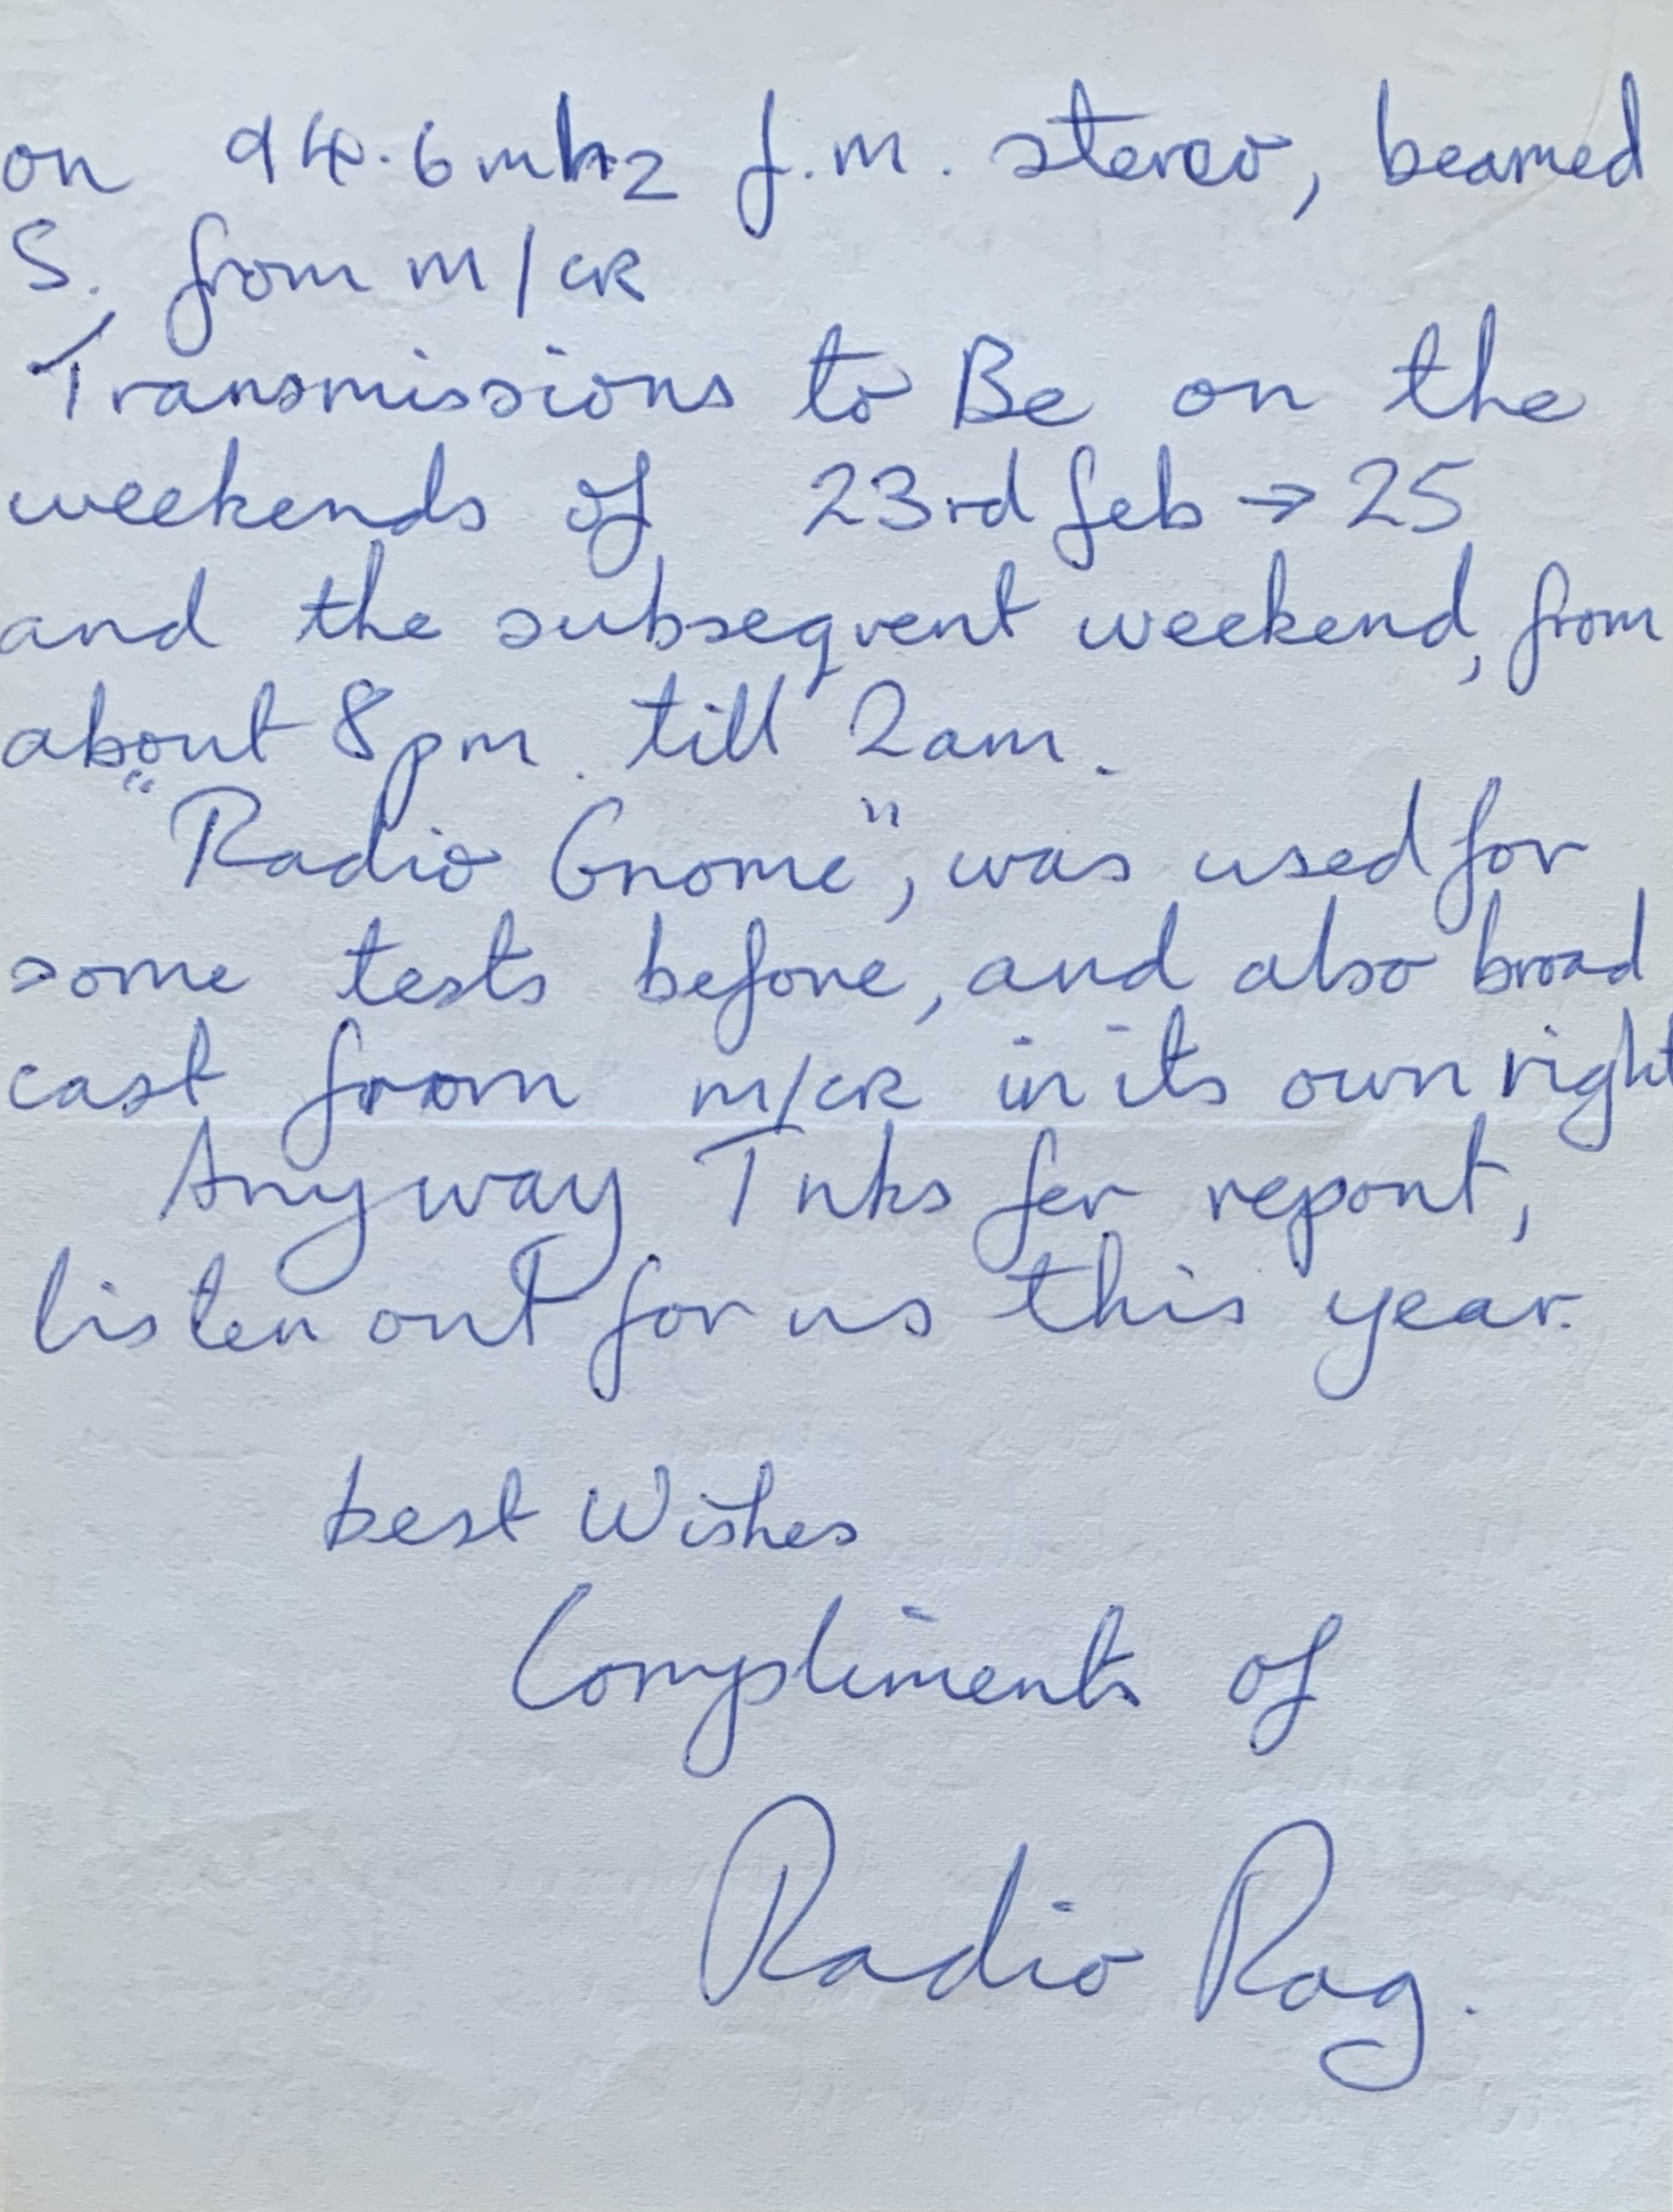 on 94.6mhz f.m. stereo, beamed
S. from m/cr
Transmissions to Be on the
weekends of 23rd feb → 25
and the subsequent weekend, from
about 8pm. till 2am.
"Radio Gnome", was used for
some tests before, and also broad
cast from m/cr in its own right
Anyway Tnks fer report,
listen out for us this year.
best Wishes
Compliments of
Radio Rag.